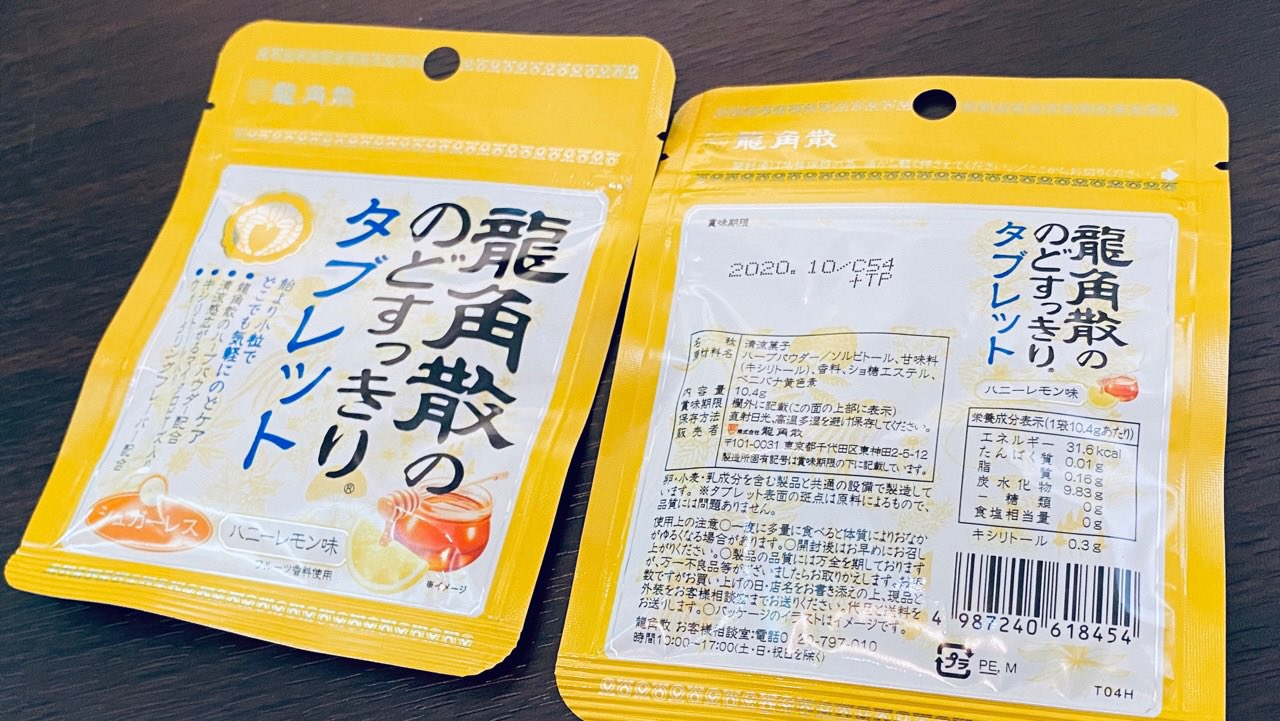 龍角散
龍角散の
のどすっきり®
タブレット
飴より小粒で
どこでも気軽にのどケア
シュガーレス
ハニーレモン味
フルーツ香料使用
※イメージ
龍角散
賞味期限
2020.10/C54
+TP
龍角散の
のどすっきり®
タブレット
ハニーレモン味
名称 清涼菓子
原材料名 ハーブパウダー/ソルビトール、甘味料
(キシリトール)、香料、ショ糖エステル、
ベニバナ黄色素
内容量 10.4g
賞味期限 欄外に記載(この面の上部に表示)
保存方法 直射日光、高温多湿を避け保存してください。
販売者 株式会社 龍角散
〒101-0031 東京都千代田区東神田2-5-12
製造所固有記号は賞味期限の下に記載しています。
卵・小麦・乳成分を含む製品と共通の設備で製造して
います。※タブレット表面の斑点は原料によるもので、
品質には問題ありません。
使用上の注意○一度に多量に食べると体質によりおなか
がゆるくなる場合があります。○開封後はお早めにお召し
上がりください。○製品の品質には万全を期しております
が、万一不良品等がございましたらお取りかえします。お手
数ですがお買い上げの日・店名をお書き添えの上、現品と
外装をお客様相談室までお送りください。代品と送料を
お送りします。○パッケージのイラストはイメージです。
龍角散 お客様相談室:電話0120-797-010
時間10:00~17:00(土・日・祝日を除く)
栄養成分表示(1袋10.4gあたり)
エネルギー 31.6kcal
たんぱく質 0.01g
脂質 0.16g
炭水化物 9.83g
-糖類 0g
食塩相当量 0g
キシリトール 0.3g
4 987240 618454
プラ PE, M
T04H